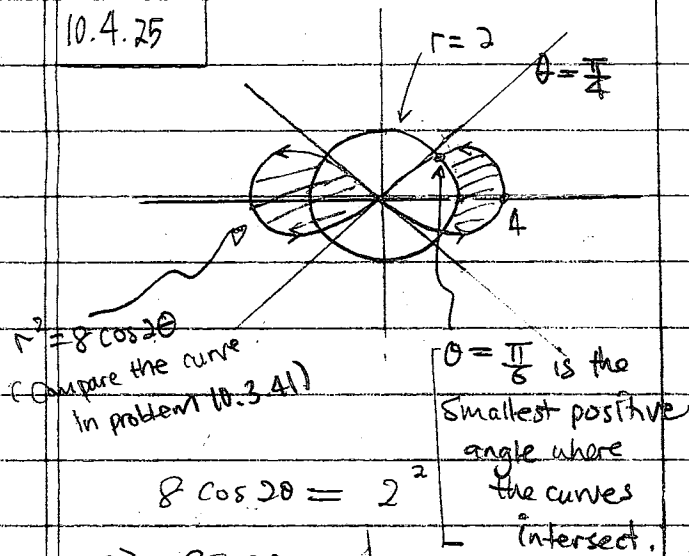 10.4.25
r = 2
θ = π/4
4
r² = 8 cos 2θ
(Compare the curve
in problem 10.3.41)
θ = π/6 is the
smallest positive
angle where
the curves
intersect.
8 cos 2θ = 2²